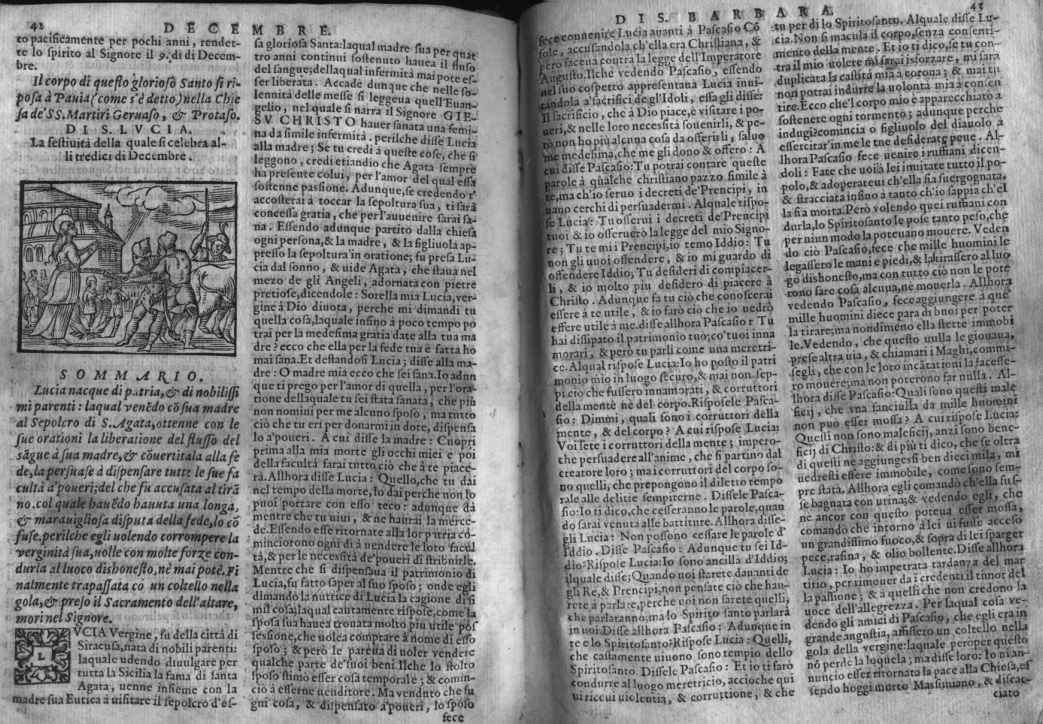 42
DECEMBRE.
to pacificamente per pochi anni, rendet-
te lo spirito al Signore il 9. di di Decem-
bre.
Il corpo di questo glorioso Santo si ri-
posa à Pauia (come s'è detto) nella Chie
sa de' SS. Martiri Geruaso, & Protaso.
DI S. LVCIA.
La festiuità della quale si celebra al-
li tredici di Decembre.
SOMMARIO.
Lucia nacque di patria, & di nobilissi
mi parenti: laqual venẽdo cõ sua madre
al Sepolcro di S. Agata, ottenne con le
sue orationi la liberatione del flusso del
sãgue à sua madre, & cõuertitala alla fe
de, la persuase à dispensare tutte le sue fa
cultà a' poueri; del che fu accusata al tirã
no. col quale hauẽdo hauuta una longa,
& marauigliosa disputa della fede, lo cõ
fuse. perilche egli uolendo corrompere la
verginità sua, uolle con molte forze con-
durla al luoco dishonesto, nè mai potè. Fi
nalmente trapassata cõ un coltello nella
gola, & preso il Sacramento dell'altare,
morì nel Signore.
LVCIA Vergine, fu della città di
Siracusa, nata di nobili parenti:
laquale udendo diuulgare per
tutta la Sicilia la fama di santa
Agata, uenne insieme con la
madre sua Eutica à uisitare il sepolcro d'es-
sa gloriosa Santa: laqual madre sua per quat
tro anni continui sostenuto haueа il flusso
del sangue; dellaqual infermità mai pote es-
ser liberata. Accade dunque che nelle so-
lennità delle messe si leggeua quell'Euan-
gelio, nel quale si narra il Signore GIE-
SV CHRISTO hauer sanata una femi-
na da simile infermità, perilche disse Lucia
alla madre; Se tu credi à queste cose, che si
leggono, credi etiandio che Agata sempre
ha presente colui, per l'amor del qual essa
sostenne passione. Adunque, se credendo t'
accosterai à toccar la sepoltura sua, ti sarà
concessa gratia, che per l'auuenire sarai sa-
na. Essendo adunque partito dalla chiesa
ogni persona, & la madre, & la figliuola ap-
presso la sepoltura in oratione; fu presa Lu-
cia dal sonno, & uide Agata, che staua nel
mezo de gli Angeli, adornata con pietre
pretiose, dicendole: Sorella mia Lucia, ver-
gine à Dio diuota, perche mi dimandi tu
quella cosa, laquale insino à poco tempo po
trai per la medesima gratia date alla tua ma
dre? ecco che ella per la fede tua è fatta hõ
mai sana. Et destandosi Lucia; disse alla ma-
dre: O madre mia ecco che sei sana. Io adun
que ti prego per l'amor di quella, per l'ora-
tione dellaquale tu sei stata sanata, che più
non nomini per me alcuno sposo, ma tutto
ciò che tu eri per donarmi in dote, dispensa
lo a' poueri. A cui disse la madre: Cuopri
prima alla mia morte gli occhi miei e poi
della facultà farai tutto ciò che à te piace-
rà. Allhora disse Lucia: Quello, che tu dai
nel tempo della morte, lo dai perche non lo
puoi portare con esso teco: adunque dà
mentre che tu uiui, & ne haurai la merce-
de. Essendo esse ritornate alla lor patria co-
minciorono ogni dì à vendere le loro facul
tà, & per le necessità de' poueri di stribuirle.
Mentre che si dispensaua il patrimonio di
Lucia, fu fatto saper al suo sposo; onde egli
dimandò la nutrice di Lucia la cagione di si
mil cosa; laqual cautamente rispose, come la
sposa sua hauea trouata molto più utile pos
sessione, che uolea comprare à nome di esso
sposo; & però le pareua di uoler vendere
qualche parte de' suoi beni. Ilche lo stolto
sposo stimò esser cosa temporale; & comin-
ciò à esserne uenditore. Ma venduto che fu
gni cosa, & dispensato a' poueri, lo sposo
fece
DI S. BARBARA.
43
fece conuenire Lucia auanti à Pascasio Cõ
sole, accusandola ch'ella era Christiana, &
però faceua contra la legge dell'Imperatore
Augusto. Ilche vedendo Pascasio, essendo
nel suo cospetto appresentata Lucia inui-
tandola a' sacrifici de gl'Idoli, essa gli disse:
Il sacrificio, che à Dio piace, è visitare i po
ueri, & nelle loro necessità souenirli, & pe-
rò non ho più alcuna cosa da offerirli, saluo
me medesima, che me gli dono & offero: A
cui disse Pascasio: Tu potrai contare queste
parole à qualche christiano pazzo simile à
te, ma ch'io seruo i decreti de' Prencipi, in
uano cerchi di persuadermi. Alquale rispo-
se Lucia: Tu osserui i decreti de' Prencipi
tuoi & io osseruerò la legge del mio Signo-
re; Tu temi i Prencipi, io temo Iddio: Tu
non gli uuoi offendere, & io mi guardo di
offendere Iddio; Tu desideri di compiacer-
li, & io molto più desidero di piacere à
Christo. Adunque fa tu ciò che conoscerai
essere à te utile, & io farò ciò che io uedrò
essere utile à me. disse allhora Pascasio: Tu
hai dissipato il patrimonio tuo; co' tuoi inna
morati, & però tu parli come una meretri-
ce. Alqual rispose Lucia: Io ho posto il patri
monio mio in luogo securo, & mai non sep-
pi ciò che fussero innamorati, & corruttori
della mente nè del corpo. Risposele Pasca-
sio: Dimmi, quali sono i corruttori della
mente, & del corpo? A cui rispose Lucia:
Voi sete i corruttori della mente; impero-
che persuadere all'anime, che si partino dal
creatore loro; mai corruttori del corpo so-
no quelli, che prepongono il diletto tempo
rale alle delitie sempiterne. Dissele Pasca-
sio: Io ti dico, che cesseranno le parole, quan
do sarai venuta alle battiture. Allhora disse-
gli Lucia: Non possono cessare le parole d'
Iddio. Disse Pascasio: Adunque tu sei Id-
dio? Rispose Lucia: Io sono ancilla d'Iddio;
ilquale disse; Quando uoi starete dauanti de
gli Re, & Prencipi, non pensate ciò che hau-
rete à parlare, perche uoi non sarete quelli,
che parlaranno; ma lo Spirito santo parlarà
in uoi. Disse allhora Pascasio: Adunque in
te e lo Spiritosanto? Rispose Lucia: Quelli,
che castamente uiuono sono tempio dello
Spiritosanto. Dissele Pascasio: Et io ti farò
condurre al luogo meretricio, accioche qui
ui riceui uiolentia, & corruttione, & che
tu perdi lo Spiritosanto. Alquale disse Lu-
cia. Non si macula il corpo, senza consenti-
mento della mente. Et io ti dico, se tu con-
tra il mio uolere mi farai isforzare, mi sarà
duplicata la castità mia à corona; & mai tu
non potrai indurre la uolontà mia à consen
tire. Ecco che'l corpo mio è apparecchiato à
sostenere ogni tormento; adunque perche
indugi? comincia o figliuolo del diauolo à
essercitar'in me le tue desiderate pene. Al-
lhora Pascasio fece uenire i ruffiani dicen-
doli: Fate che uoi à lei inuitate tutto il po-
polo, & adoperateui ch'ella sia suergognata,
& stracciata insino à tanto ch'io sappia ch'el
la sia morta. Però volendo quei ruffiani con
durla, lo Spiritosanto le pose tanto peso, che
per niun modo la poteuano mouere. Veden
do ciò Pascasio, fece che mille huomini le
legassero le mani e piedi, & la tirassero al luo
go dishonesto, ma con tutto ciò non le pote
rono fare cosa alcuna, ne mouerla. Allhora
vedendo Pascasio, fece aggiungere a' que'
mille huomini diece para di buoi per poter
la tirare; ma nondimeno ella stette immobi
le. Vedendo, che questo nulla le giouaua,
prese altra uia, & chiamati i Maghi, commi-
segli, che con le loro incãtationi la facesse-
ro mouere; ma non poterono far nulla. Al-
lhora disse Pascasio: Quali sono questi male
ficij, che vna fanciulla da mille huomini
non può esser mossa? A cui rispose Lucia:
Questi non sono maleficij, anzi sono bene-
ficij di Christo: & di più ti dico, che se oltra
di questi ne aggiungessi ben dieci mila, mi
uedresti essere immobile, come sono sem-
pre stata. Allhora egli comandò ch'ella fus-
se bagnata con urina; & vedendo egli, che
ne ancor con questo poteua esser mossa,
comandò che intorno à lei ui fusse acceso
un grandissimo fuoco, & sopra di lei sparger
pece, rasina, & olio bollente. Disse allhora
Lucia: Io ho impetrata tardanza del mar
tirio, per rimouer da i credenti il timor del
la passione; & à quelli che non credono la
uoce dell'allegrezza. Per laqual cosa ve-
dendo gli amici di Pascasio, che egli era in
grande angustia, affissero un coltello nella
gola della vergine: laquale però per questo
nõ perdè la loquela; ma disse loro: Io ui an-
nuncio esser ritornata la pace alla Chiesa, es
sendo hoggi morto Massimiano, & discac-
ciato